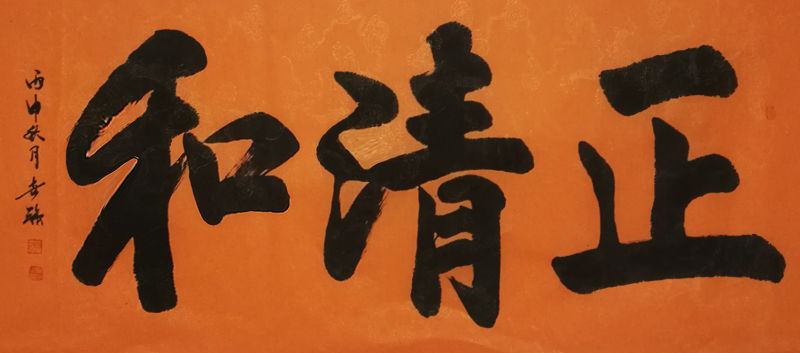 正清和
丙申秋月